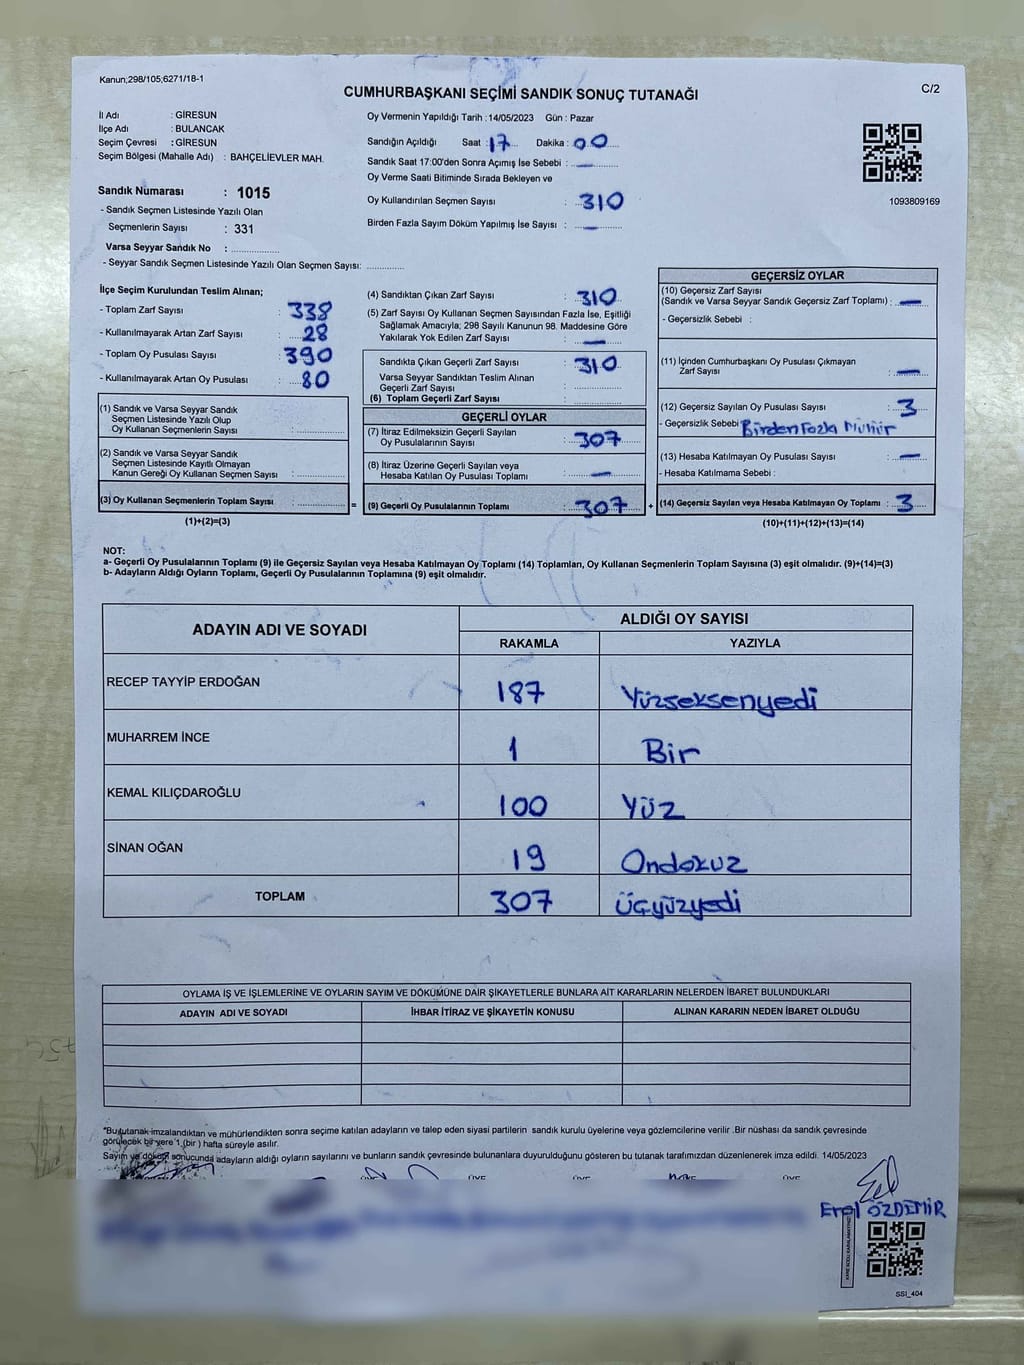 Kanun;298/105,6271/18-1
C/2
CUMHURBAŞKANI SEÇİMİ SANDIK SONUÇ TUTANAĞI
İl Adı : GİRESUN
İlçe Adı : BULANCAK
Seçim Çevresi : GİRESUN
Seçim Bölgesi (Mahalle Adı) : BAHÇELİEVLER MAH.
Sandık Numarası : 1015
- Sandık Seçmen Listesinde Yazılı Olan
Seçmenlerin Sayısı : 331
Varsa Seyyar Sandık No :
- Seyyar Sandık Seçmen Listesinde Yazılı Olan Seçmen Sayısı:
Oy Vermenin Yapıldığı Tarih :14/05/2023 Gün : Pazar
Sandığın Açıldığı Saat : 17 Dakika : 00
Sandık Saat 17:00'den Sonra Açımış İse Sebebi : —
Oy Verme Saati Bitiminde Sırada Bekleyen ve
Oy Kullandırılan Seçmen Sayısı : 310
Birden Fazla Sayım Döküm Yapılmış İse Sayısı : —
1093809169
İlçe Seçim Kurulundan Teslim Alınan;
- Toplam Zarf Sayısı : 338
- Kullanılmayarak Artan Zarf Sayısı : 28
- Toplam Oy Pusulası Sayısı : 390
- Kullanılmayarak Artan Oy Pusulası : 80
(1) Sandık ve Varsa Seyyar Sandık
Seçmen Listesinde Yazılı Olup
Oy Kullanan Seçmenlerin Sayısı :
(2) Sandık ve Varsa Seyyar Sandık
Seçmen Listesinde Kayıtlı Olmayan
Kanun Gereği Oy Kullanan Seçmen Sayısı :
(3) Oy Kullanan Seçmenlerin Toplam Sayısı :
(1)+(2)=(3)
(4) Sandıktan Çıkan Zarf Sayısı : 310
(5) Zarf Sayısı Oy Kullanan Seçmen Sayısından Fazla İse, Eşitliği
Sağlamak Amacıyla; 298 Sayılı Kanunun 98. Maddesine Göre
Yakılarak Yok Edilen Zarf Sayısı : —
Sandıkta Çıkan Geçerli Zarf Sayısı : 310
Varsa Seyyar Sandıktan Teslim Alınan
Geçerli Zarf Sayısı :
(6) Toplam Geçerli Zarf Sayısı :
GEÇERLİ OYLAR
(7) İtiraz Edilmeksizin Geçerli Sayılan
Oy Pusulalarının Sayısı : 307
(8) İtiraz Üzerine Geçerli Sayılan veya
Hesaba Katılan Oy Pusulası Toplamı : —
= (9) Geçerli Oy Pusulalarının Toplamı : 307
GEÇERSİZ OYLAR
(10) Geçersiz Zarf Sayısı
(Sandık ve Varsa Seyyar Sandık Geçersiz Zarf Toplamı) : —
- Geçersizlik Sebebi :
(11) İçinden Cumhurbaşkanı Oy Pusulası Çıkmayan
Zarf Sayısı : —
(12) Geçersiz Sayılan Oy Pusulası Sayısı : 3
- Geçersizlik Sebebi : Birden Fazla Mühür
(13) Hesaba Katılmayan Oy Pusulası Sayısı : —
- Hesaba Katılmama Sebebi :
+ (14) Geçersiz Sayılan veya Hesaba Katılmayan Oy Toplamı : 3
(10)+(11)+(12)+(13)=(14)
NOT:
a- Geçerli Oy Pusulalarının Toplamı (9) ile Geçersiz Sayılan veya Hesaba Katılmayan Oy Toplamı (14) Toplamları, Oy Kullanan Seçmenlerin Toplam Sayısına (3) eşit olmalıdır. (9)+(14)=(3)
b- Adayların Aldığı Oyların Toplamı, Geçerli Oy Pusulalarının Toplamına (9) eşit olmalıdır.
ADAYIN ADI VE SOYADI ALDIĞI OY SAYISI
RAKAMLA YAZIYLA
RECEP TAYYİP ERDOĞAN 187 Yüzseksenyedi
MUHARREM İNCE 1 Bir
KEMAL KILIÇDAROĞLU 100 Yüz
SİNAN OĞAN 19 Ondokuz
TOPLAM 307 Üçyüzyedi
OYLAMA İŞ VE İŞLEMLERİNE VE OYLARIN SAYIM VE DÖKÜMÜNE DAİR ŞİKAYETLERLE BUNLARA AİT KARARLARIN NELERDEN İBARET BULUNDUKLARI
ADAYIN ADI VE SOYADI İHBAR İTİRAZ VE ŞİKAYETİN KONUSU ALINAN KARARIN NEDEN İBARET OLDUĞU
*Bu tutanak imzalandıktan ve mühürlendikten sonra seçime katılan adayların ve talep eden siyasi partilerin sandık kurulu üyelerine veya gözlemcilerine verilir .Bir nüshası da sandık çevresinde
görülecek bir yere 1 (bir ) hafta süreyle asılır.
Sayım ve döküm sonucunda adayların aldığı oyların sayılarını ve bunların sandık çevresinde bulunanlara duyurulduğunu gösteren bu tutanak tarafımızdan düzenlenerek imza edildi. 14/05/2023
ÜYE ÜYE ÜYE
Erol ÖZDEMİR
SSI_404